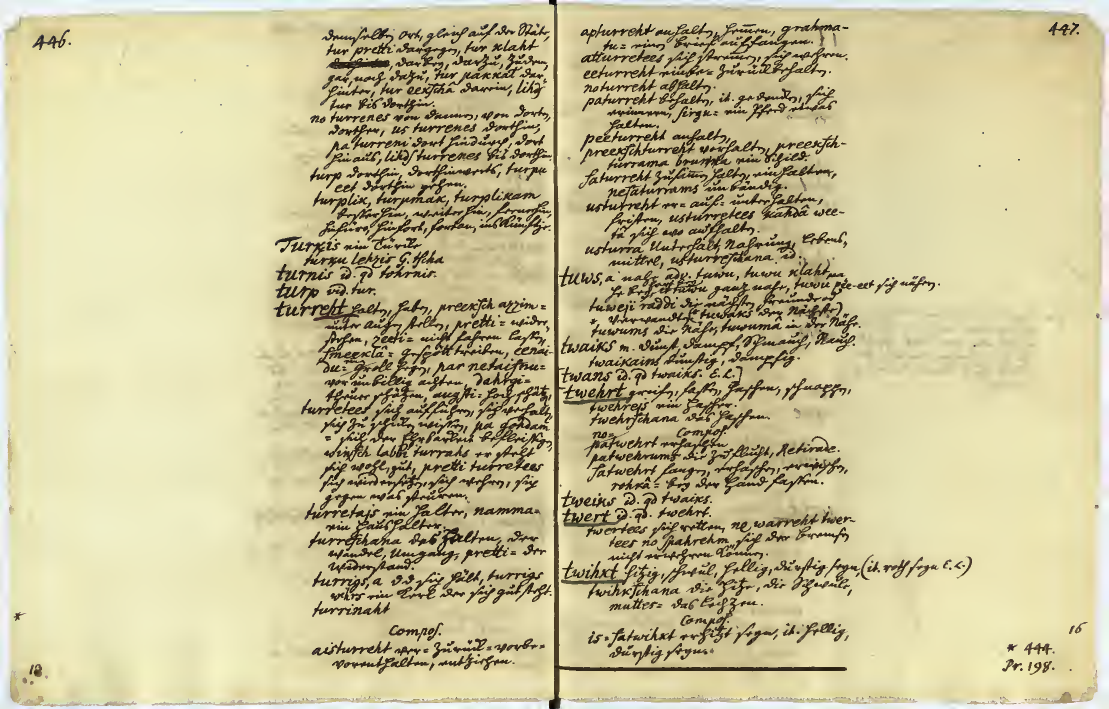 446.
demselben Ort, gleich auf der Stätte,
tur pretti dargegen, tur klaht
darbey, darzu, zudem,
gar, noch dazu, tur pakkaļ dar-
hinter, tur eekschâ darein, lihds
tur bis dorthin.
no turrenes von dannen, von dorten,
dorther, us turrenes dorthin,
pa turreni dort hindurch, dort
hinaus, lihds turrenes bis dorthin.
turp dorthin, dorthinwerts, turpu
eet dorthin gehen.
turplik, turpmak, turplikam
weiter hin, fernerhin,
hinfort, fortan, ins Künftige.
Turkis ein Türcke
turku
turnis id. qd tohrnis.
turp vid. tur.
turreht halten, haben, preeksch azzim=
unter Augen stellen, pretti= wider-
stehen, nicht fahren lassen,
smeeklâ= Gespött treiben,
Groll hegen, par netaisnu=
vor unbillig achten, dahrgi=
theuer schätzen, augsti= hochschätzen,
turretees sich aufführen, sich verhalten,
sich zu wissen, pa gohdam
= sich der Ehrbarkeit befleissigen,
winsch labbi turrahs er stelt
sich wohl, gut, pretti turretees
sich widersetzen, sich wehren, sich
gegen was steuren.
turretajs ein Halter, namma=
ein Haushalter.
turreschana das Halten, der
Wandel, Umgang, pretti= der
Widerstand.
turrigs, a d. d. sich hält, turrigs
wihrs ein Kerl der sich gut steht.
turrinaht
Compos.
aisturreht ver= zurück= vorbe=
vorenthalten, entziehen.
18.
447.
apturreht anhalten, hemmen, grahma-
tu= einen Brief auffangen.
atturretees sich stemmen, sich wehren.
eeturreht einbe= zurückbehalten.
noturreht abhalten.
paturreht behalten, it. gedencken, sich
erinnern, sirgu= ein Pferd etwas
halten.
peeturreht anhalten,
preekschturreht vorhalten, preeksch-
turrama brunna ein Schild.
saturreht zusammen halten, einhalten,
nesaturrams unbändig.
usturreht er= auf= unterhalten,
fristen, usturretees kahdâ wee-
tâ sich wo aufhalten.
usturra Unterhalt, Nahrung, Lebens-
mittel, usturreschana id.
tuws, a nahe adv. tuwu, tuwu klaht
ganz nahe, tuwu pee-eet sich nähern.
tuweji raddi die nächsten Freunde
Verwandte tuwaks der Nächste
tuwums die Nähe, tuwumâ in der Nähe.
twaiks m. Dunst, Dampf, Schmauch, Rauch.
twaikains dunstig, dampfig.
twans id. qd twaiks. E. L.
twehrt greifen, fassen, haschen, schnappen,
twehrejs ein Fasser.
twehrschana das Haschen.
Compos.
no=
patwehrt erhaschen
patwehrums die Zuflucht, Retirade.
satwehrt fangen, erhaschen, erwischen,
rohkâ= bey der Hand fassen.
tweiks id. qd twaiks.
twert id. qd. twehrt.
twertees sich retten, ne warreht twer-
tees no spahrehm sich der Bremsen
nicht erwehren können.
twihkt hitzig, schwül, hellig, durstig seyn, (it. roth seyn E. L.)
twihkschana die Hitze, die Schwüle,
muttes= das Lechzen.
Compos.
is= satwihkt erhitzt seyn, it. hellig,
durstig seyn.
16
* 444.
Pr. 198.